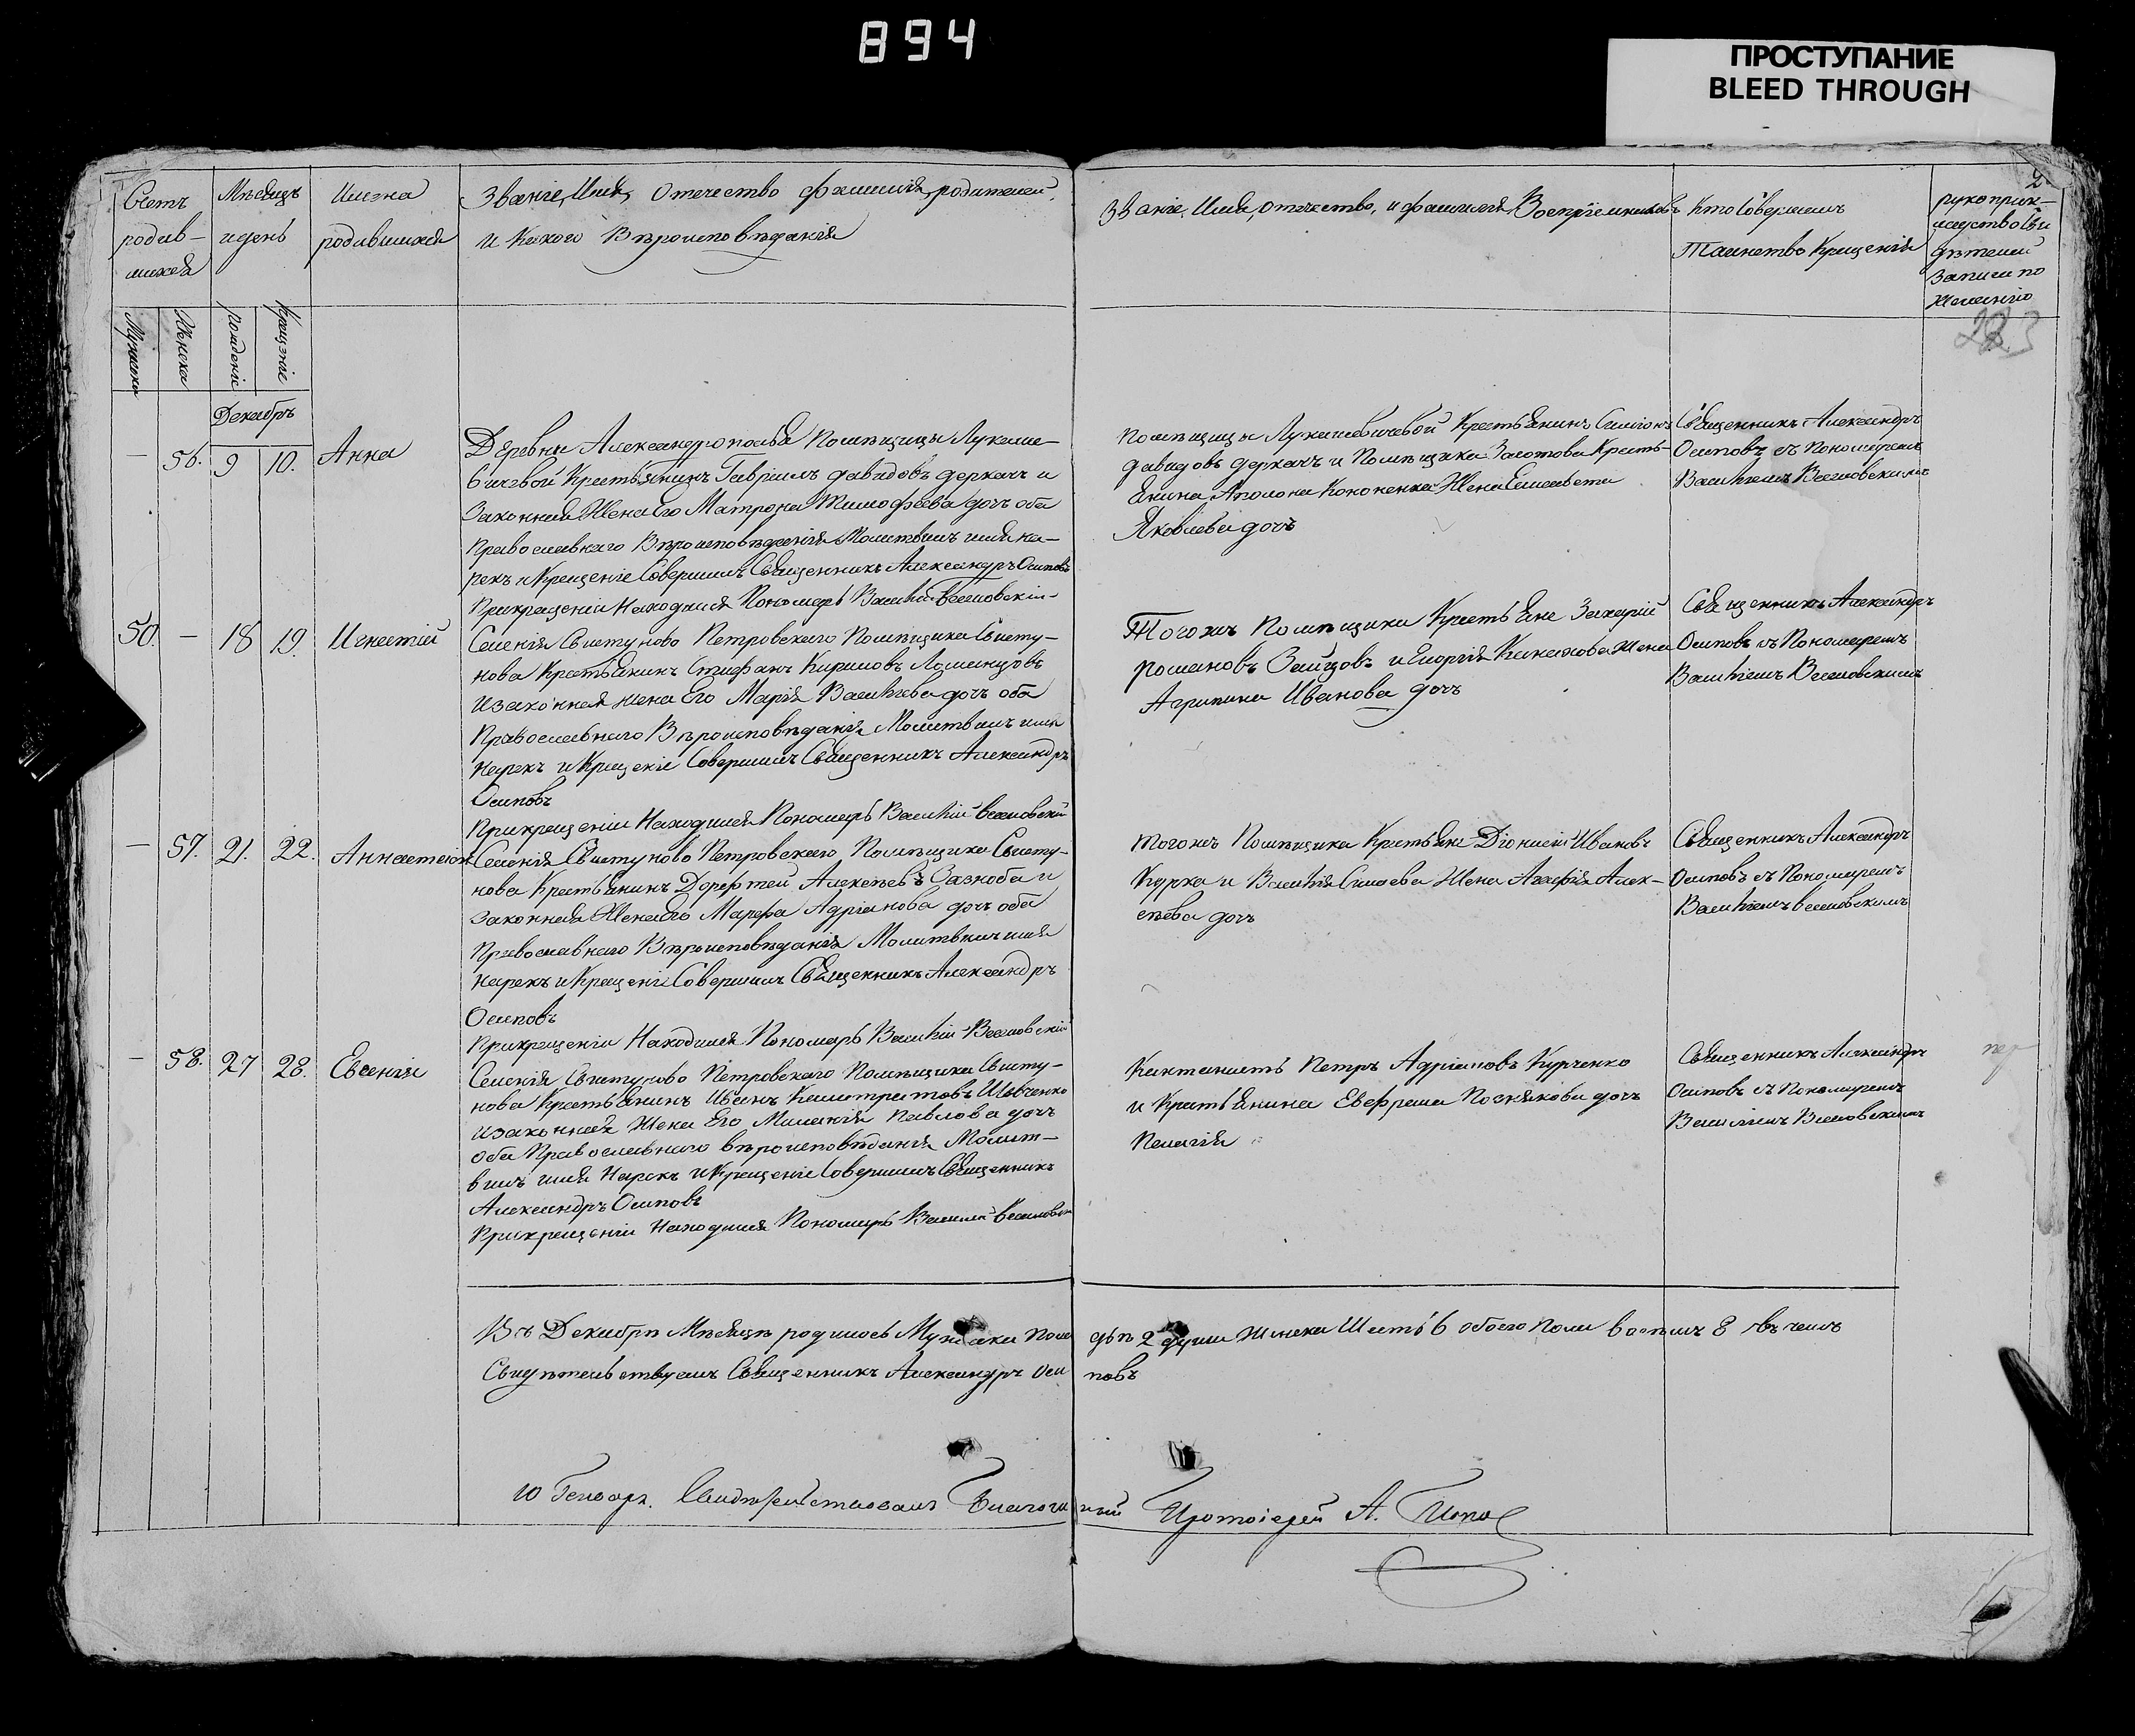 894
ПРОСТУПАНИЕ
BLEED THROUGH
Счетъ
родив-
шихся
Мѣсяцъ
и день
Имена
родившихся
Званіе, Имя, Отечество фамилія, родителей,
и какого Вѣроисповѣданія
Званіе, Имя, отечество, и фамилія, Воспріемниковъ
Кто Совершалъ
Таинство Крещенія
рукоприк-
Записи по
желанію
Мужеска
Женска
рожденіе
Крещеніе
283
Декабрь
— 56. 9 10. Анна
Деревни Александрополья Помѣщицы Лукаше-
вичевой Крестьянинъ Гавріилъ давидовъ деркачъ и
Законная Жена Его Матрона Тимофѣева дочь оба
Православнаго Вѣроисповѣданія Молитвилъ имя на-
рекъ и Крещеніе Совершилъ Священникъ Александръ Осиповъ
При крещеніи Находился Пономарь Василій Веселовскій
Помѣщицы Лукашевичевой Крестьянинъ Симеонъ
давидовъ деркачъ и Помѣщика Золотова Кресть-
янина Аполона Кононенка Жена Елисавета
Яковлева дочь
Священникъ Александръ
Осиповъ съ Пономаремъ
Василіемъ Веселовскимъ
50. — 18 19. Игнатій
Селенія Свистуново Петровскаго Помѣщика Свисту-
нова Крестьянинъ Стефанъ Кириловъ Ломанцовъ
и законная жена Его Марія Васильева дочь оба
Православнаго Вѣроисповѣданія Молитвилъ имя
Нарекъ и Крещеніе Совершилъ Священникъ Александръ
Осиповъ
При крещеніи Находился Пономарь Василій Веселовскій
Тогожъ Помѣщика Крестьяне Захарій
Романовъ Зайцовъ и Георгія Канахова жена
Агрипина Иванова дочь
Священникъ Александръ
Осиповъ съ Пономаремъ
Василіемъ Веселовскимъ
— 57. 21. 22. Аннастасія
Селенія Свистуново Петровскаго Помѣщика Свисту-
нова Крестьянинъ Дорофтей Алексѣевъ Сазноба и
законная Жена Его Марфа Адріанова дочь оба
Православнаго Вѣроисповѣданія Молитвилъ имя
Нарекъ и Крещеніе Совершилъ Священникъ Александръ
Осиповъ
При крещеніи Находился Пономарь Василій Веселовскій
Тогожъ Помѣщика Крестьяне Діонисій Ивановъ
Курка и Василія Сысоева Жена Агафія Алек-
сѣева дочь
Священникъ Александръ
Осиповъ съ Пономаремъ
Василіемъ Веселовскимъ
— 58. 27 28. Евгенія
Селенія Свистуново Петровскаго Помѣщика Свисту-
нова Крестьянинъ Иванъ Калистратовъ Шевченко
и законная Жена Его Меланія Павлова дочь
оба Православнаго вѣроисповѣданія Молит-
вилъ имя Нарекъ и Крещеніе Совершилъ Священникъ
Александръ Осиповъ
При крещеніи Находился Пономарь Василій Веселовск
Кантонистъ Петръ Адріановъ Курченко
и Крестьянина Евфрема Познякова дочь
Пелагія
Священникъ Александръ
Осиповъ съ Пономаремъ
Василіемъ Веселовскимъ
Въ Декабрѣ Мѣсяцѣ родилось Мужска пола двѣ 2 души Женска Шесть 6 обоего Пола восемъ 8 въ чемъ
Свидѣтельствуемъ Священникъ Александръ Осиповъ
10 Генваря. Свидѣтельствовалъ Благочинный Протоіерей А.